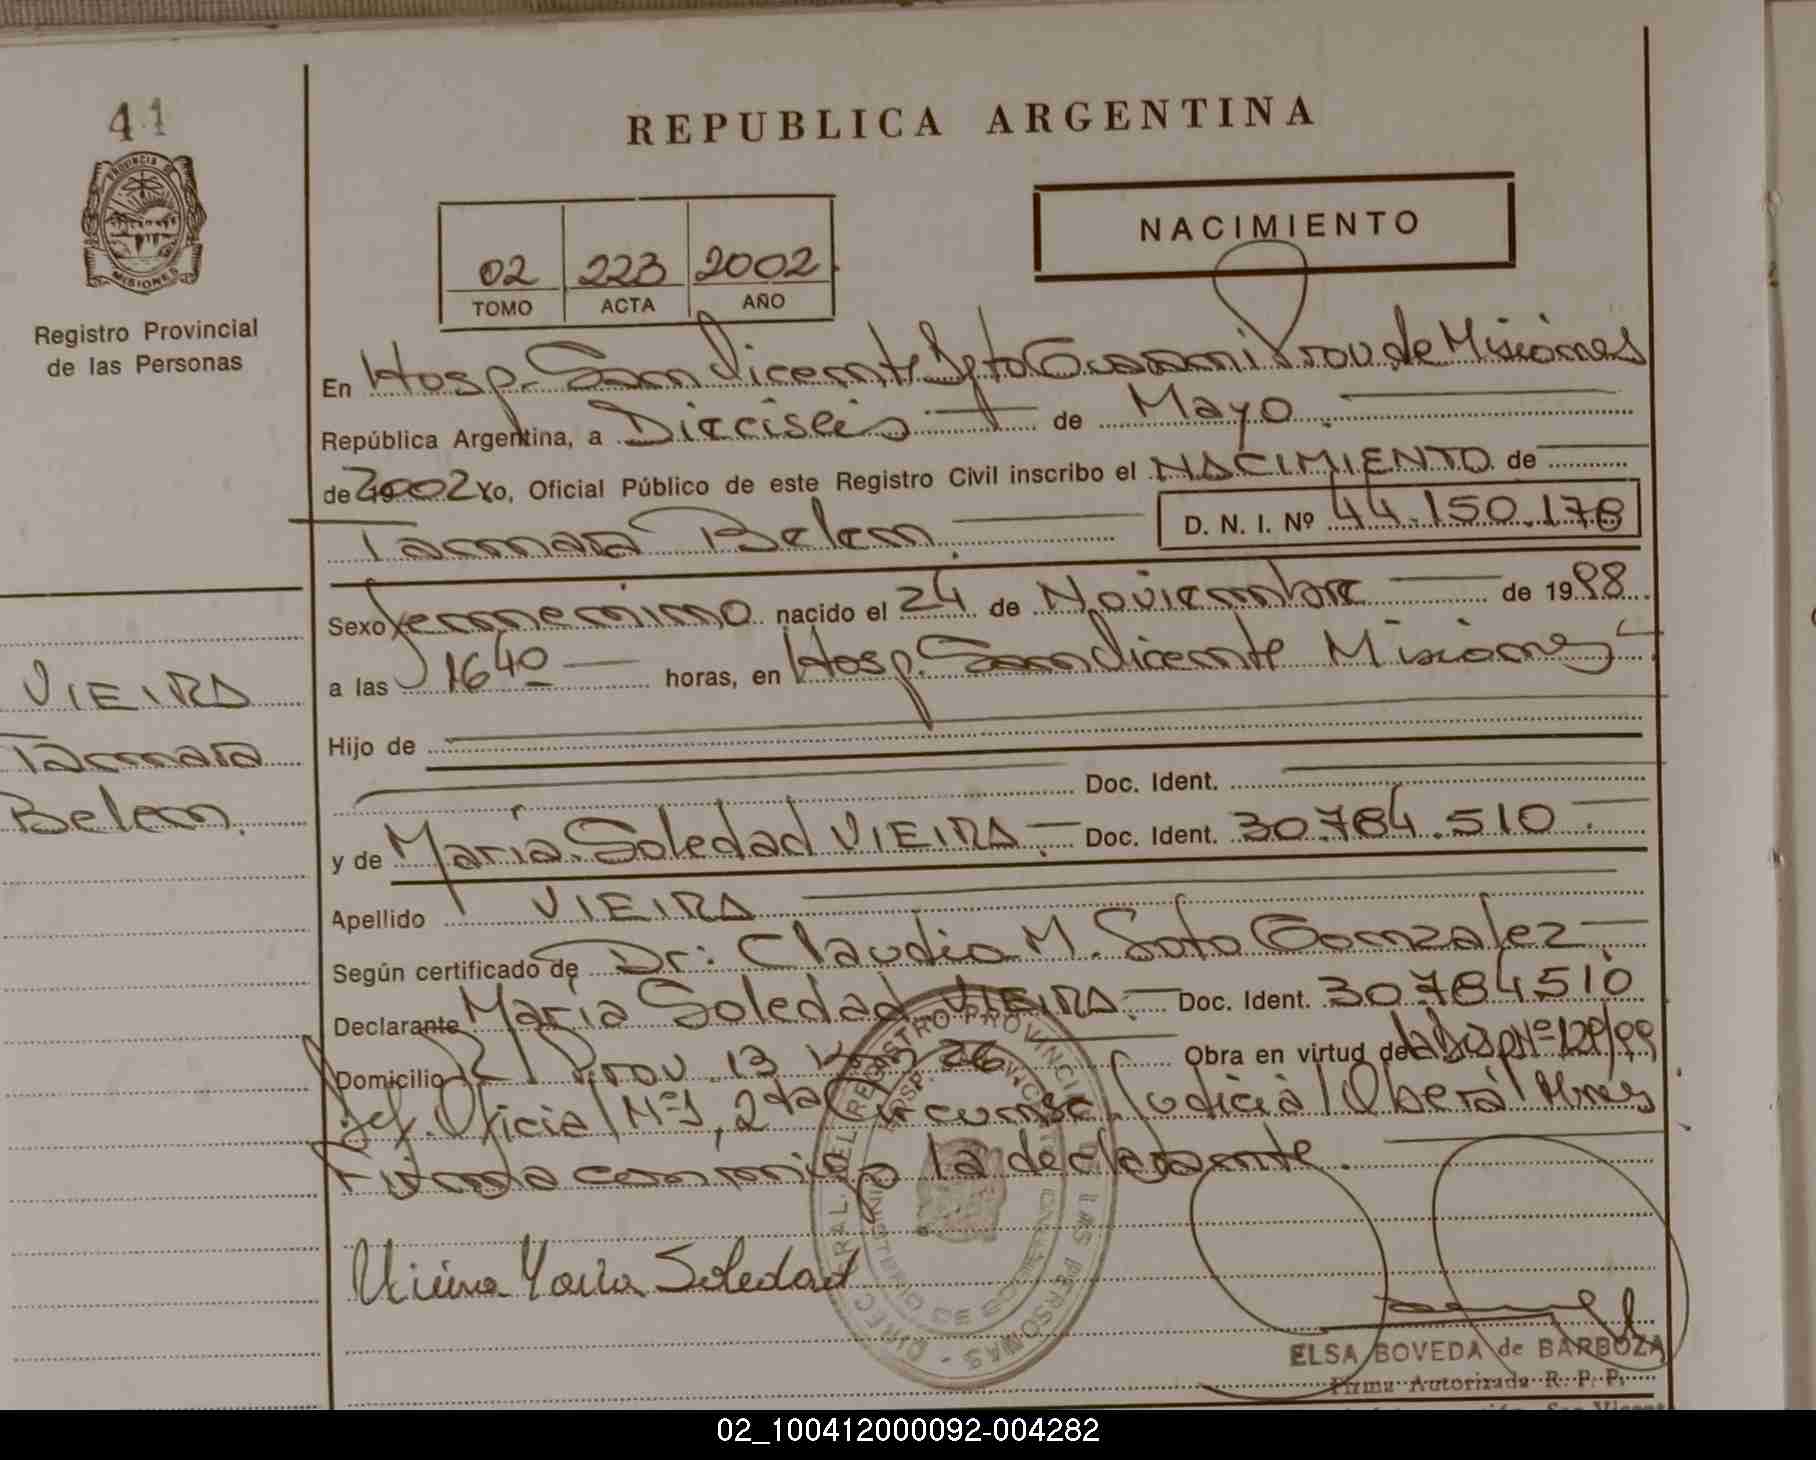 41
PROVINCIA DE
MISIONES
Registro Provincial
de las Personas
REPUBLICA ARGENTINA
02 223 2002
TOMO ACTA AÑO
NACIMIENTO
En Hosp. San Vicente Dpto Guarani Prov. de Misiones
República Argentina, a Dieciseis de Mayo
de 2002 Yo, Oficial Público de este Registro Civil inscribo el NACIMIENTO de
Tamara Belen D. N. I. Nº 44.150.178
Sexo femenino nacido el 24 de Noviembre de 1998
a las 16 40 horas, en Hosp. San Vicente Misiones
Hijo de
Doc. Ident.
y de Maria Soledad VIEIRA Doc. Ident. 30.784.510
Apellido VIEIRA
Según certificado de Dr: Claudio M. Soto Gonzalez
Declarante Maria Soledad VIEIRA Doc. Ident. 30784510
Domicilio Prov. 13 Km 26 Obra en virtud de la Disp Nº 129/99
Def. Oficial Nº 1, 2da Circunsc. Judicial Oberá Mnes
Firma conmigo la declarante.
VIEIRA
Tamara
Belen.
Vieira Maria Soledad
ELSA BOVEDA de BARBOZA
Firma Autorizada R. P. P.
02_100412000092-004282